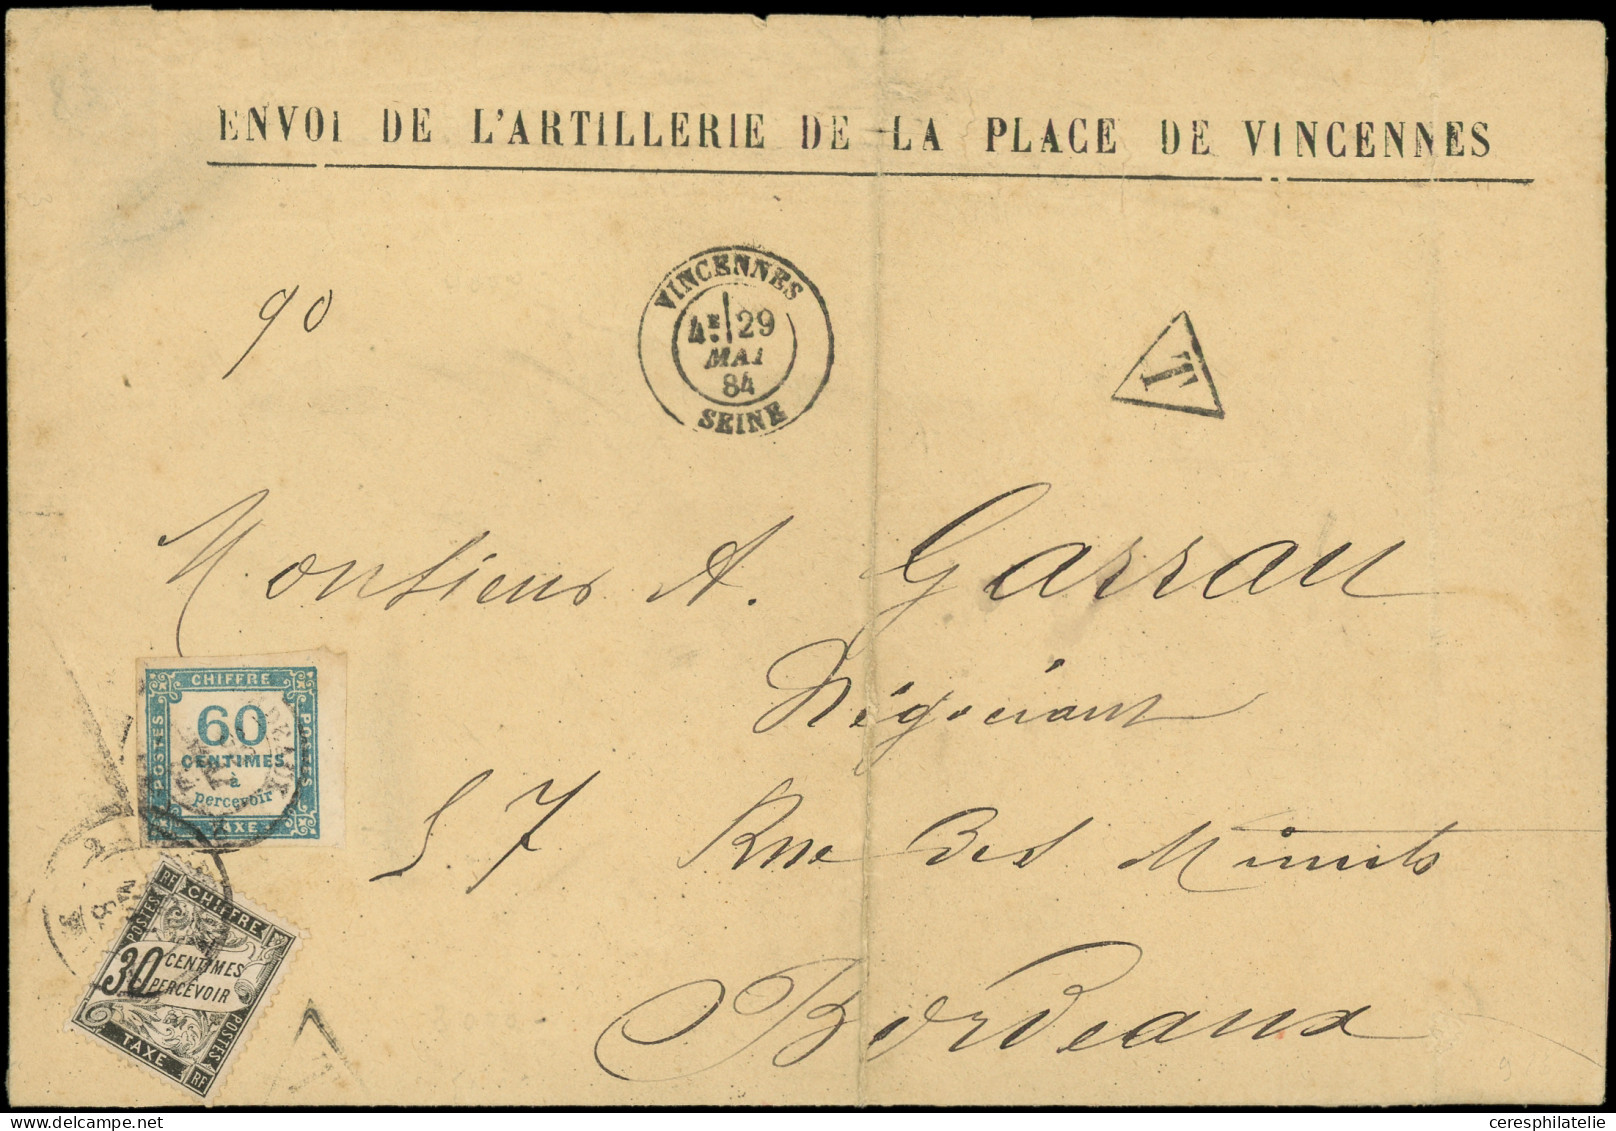 ENVOI DE L'ARTILLERIE DE LA PLACE DE VINCENNES
90
VINCENNES
4E 29
MAI
84
SEINE
T
Monsieur A. Garrau
Négociant
57 Rue des Minuts
Bordeaux
CHIFFRE
POSTES
60
CENTIMES
à
percevoir
POSTES
TAXE
RF
CHIFFRE
POSTES
30 CENTIMES
PERCEVOIR
POSTES
TAXE
RF
ceresphilatelie